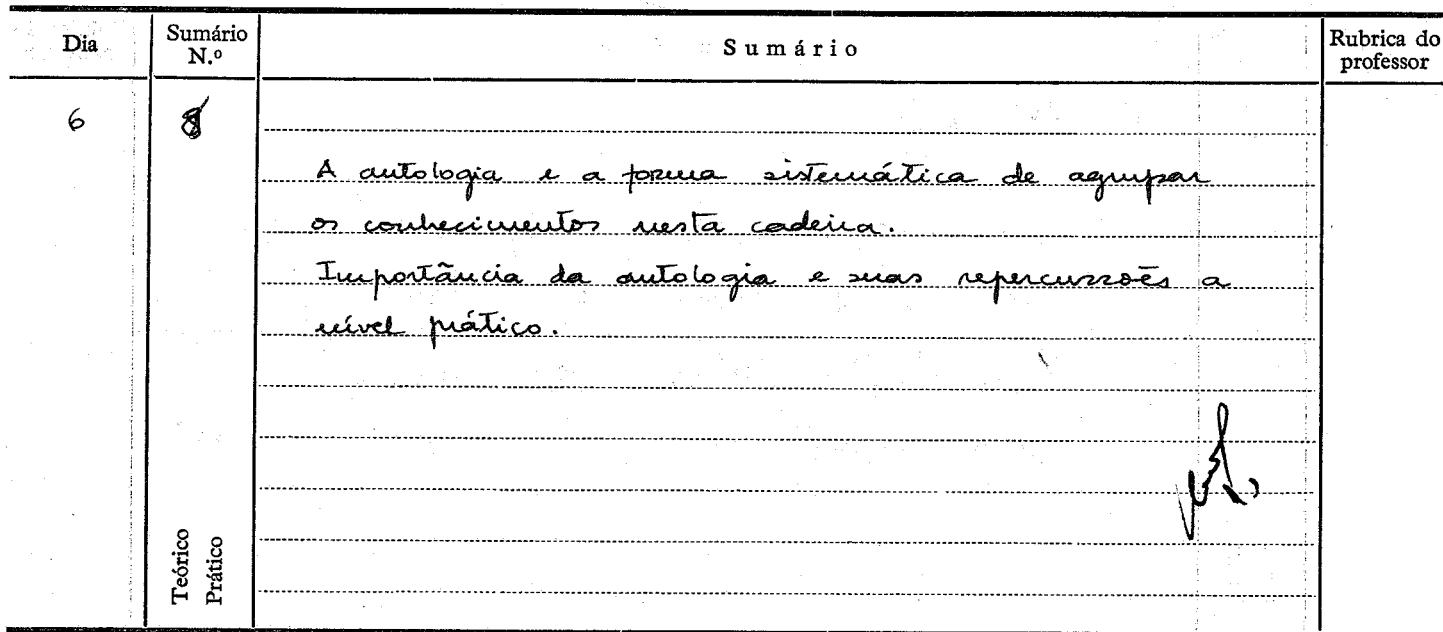 Dia
Sumário N.º
Sumário
Rubrica do professor
6
8
A autologia e a forma sistemática de agrupar
os conhecimentos nesta cadeira.
Importância da autologia e suas repercussões a
nível prático.
Teórico
Prático